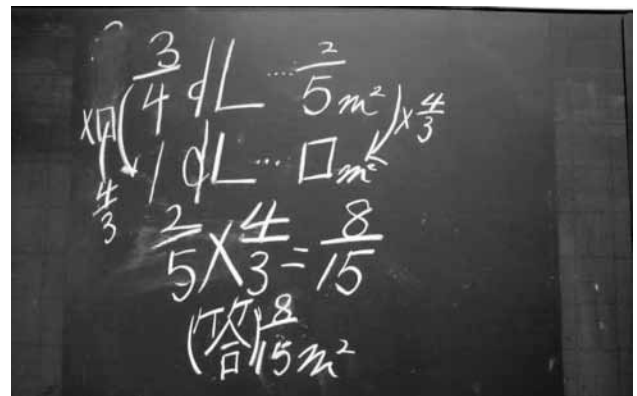 3/4 dL … 2/5 m²
×□ ×4/3
4/3
1 dL … □ m²
2/5 × 4/3 = 8/15
(答) 8/15 m²